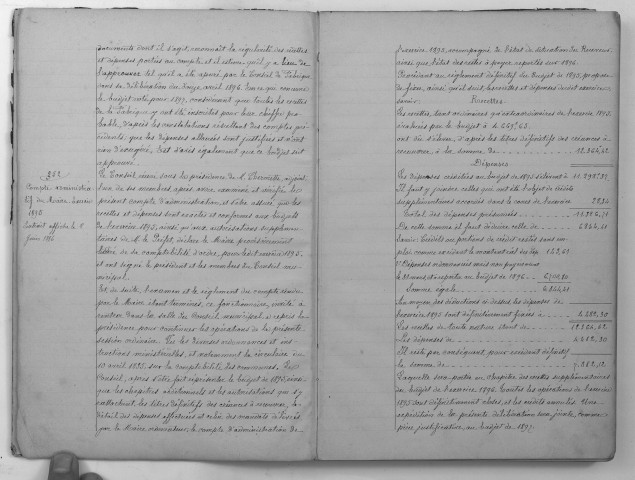 documents dont il s'agit, reconnaît la régularité des recettes
et dépenses portées au compte, et il estime qu'il y a lieu de
l'approuver tel qu'il a été apuré par le Conseil de Fabrique
dans sa délibération du douze avril 1896. En ce qui concerne
le budget voté pour 1897, considérant que toutes les recettes
de la Fabrique y ont été inscrites pour leur chiffre pro-
bable, d'après les constatations résultant des comptes pré-
cédents, que les dépenses allouées sont justifiées et n'ont
rien d'exagéré, Est d'avis également que ce budget soit
approuvé.
Compte administra-
tif du Maire, Exercice
1895
Extrait affiché le
juin 1896
Le Conseil réuni, sous la présidence de M.
l'un de ses membres, après avoir examiné et vérifié le
présent compte d'administration, et s'être assuré que les
recettes et dépenses sont exactes et conformes aux budgets
de l'exercice 1895, ainsi qu'aux autorisations supplémen-
taires de M. le Préfet, déclare le Maire provisoirement
libéré de sa comptabilité d'ordre, pour ledit exercice 1895.
et ont signé le président et les membres du Conseil mu-
nicipal.
Et de suite, l'examen et le règlement des comptes rendus
par le Maire étant terminés, ce fonctionnaire, invité à
rentrer dans la salle du Conseil municipal, a repris la
présidence pour continuer les opérations de la présente
session ordinaire. Vu les diverses ordonnances et ins-
tructions ministérielles, et notamment la circulaire du
10 avril 1835 sur la comptabilité des communes, Le
Conseil, après s'être fait représenter le budget de 1895, ainsi
que les chapitres additionnels et les autorisations qui s'y
rattachent, les titres définitifs des créances à recouvrer, le
détail des dépenses effectuées et celui des mandats délivrés
par le Maire ordonnateur, le compte d'administration de
l'exercice 1895, accompagné de l'état de situation du Receveur,
ainsi que l'état des restes à payer reportés sur 1896.
Procédant au règlement définitif du budget de 1895, propose
de fixer, ainsi qu'il suit, les recettes et dépenses dudit exercice
savoir:
Recettes
Les recettes, tant ordinaires qu'extraordinaires de l'exercice 1895
évaluées par le budget à
ont dû s'élever, d'après les titres définitifs des créances à
recouvrer à la somme de
Dépenses
Les dépenses créditées au budget de 1895 s'élèvent à
Il faut y joindre celles qui ont été l'objet de crédits
supplémentaires accordés dans le cours de l'exercice
Total des dépenses présumées
De cette somme il faut déduire celle de
Savoir: Crédits ou portions de crédits restés sans em-
ploi comme excédant le montant réel des dép.
2° Dépenses reconnues mais non payées au
31 mars, et reportées au budget de 1896
Somme égale
Au moyen des déductions ci-dessus, les dépenses de
l'exercice 1895 sont définitivement fixées à
Les recettes de toute nature étant de
Les dépenses de
Il reste par conséquent pour excédent définitif
la somme de
Laquelle sera portée au chapitre des recettes supplémentaires
au budget de l'exercice 1896. Toutes les opérations de l'exercice
1895 sont définitivement closes, et les crédits annulés. Une
expédition de la présente délibération sera jointe, comme
pièce justificative, au budget de 1897.